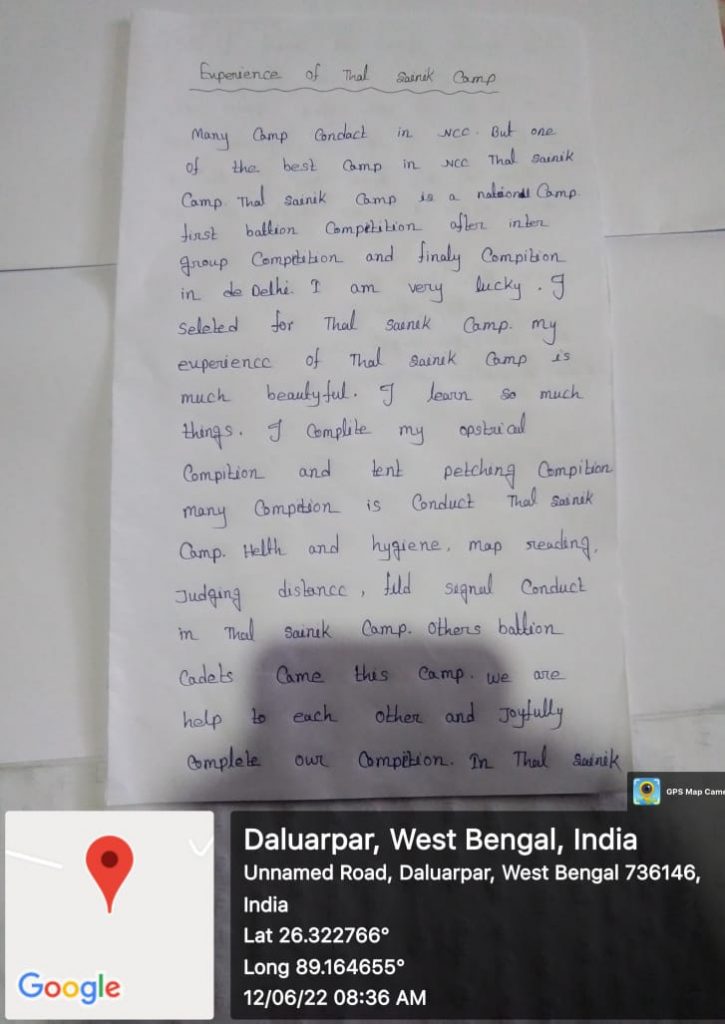 Experience of Thal Sainik Camp
Many Camp Conduct in NCC. But one
of the best Camp in NCC Thal Sainik
Camp. Thal Sainik Camp is a national Camp.
first baltion Competition after inter
group Competition and finaly Compition
in de Delhi. I am very lucky. I
seleted for Thal Sainik Camp. my
experience of Thal Sainik Camp is
much beautyful. I learn so much
things. I Complite my opstrical
Compition and tent petching Compition
many Compition is Conduct Thal Sainik
Camp. Helth and hygiene, map reading,
Judging distance, fild signal Conduct
in Thal Sainik Camp. Others baltion
Cadets Came this Camp. we are
help to each other and Joyfully
Complete our Compition. In Thal Sainik
GPS Map Came
Daluarpar, West Bengal, India
Unnamed Road, Daluarpar, West Bengal 736146,
India
Lat 26.322766°
Long 89.164655°
12/06/22 08:36 AM
Google